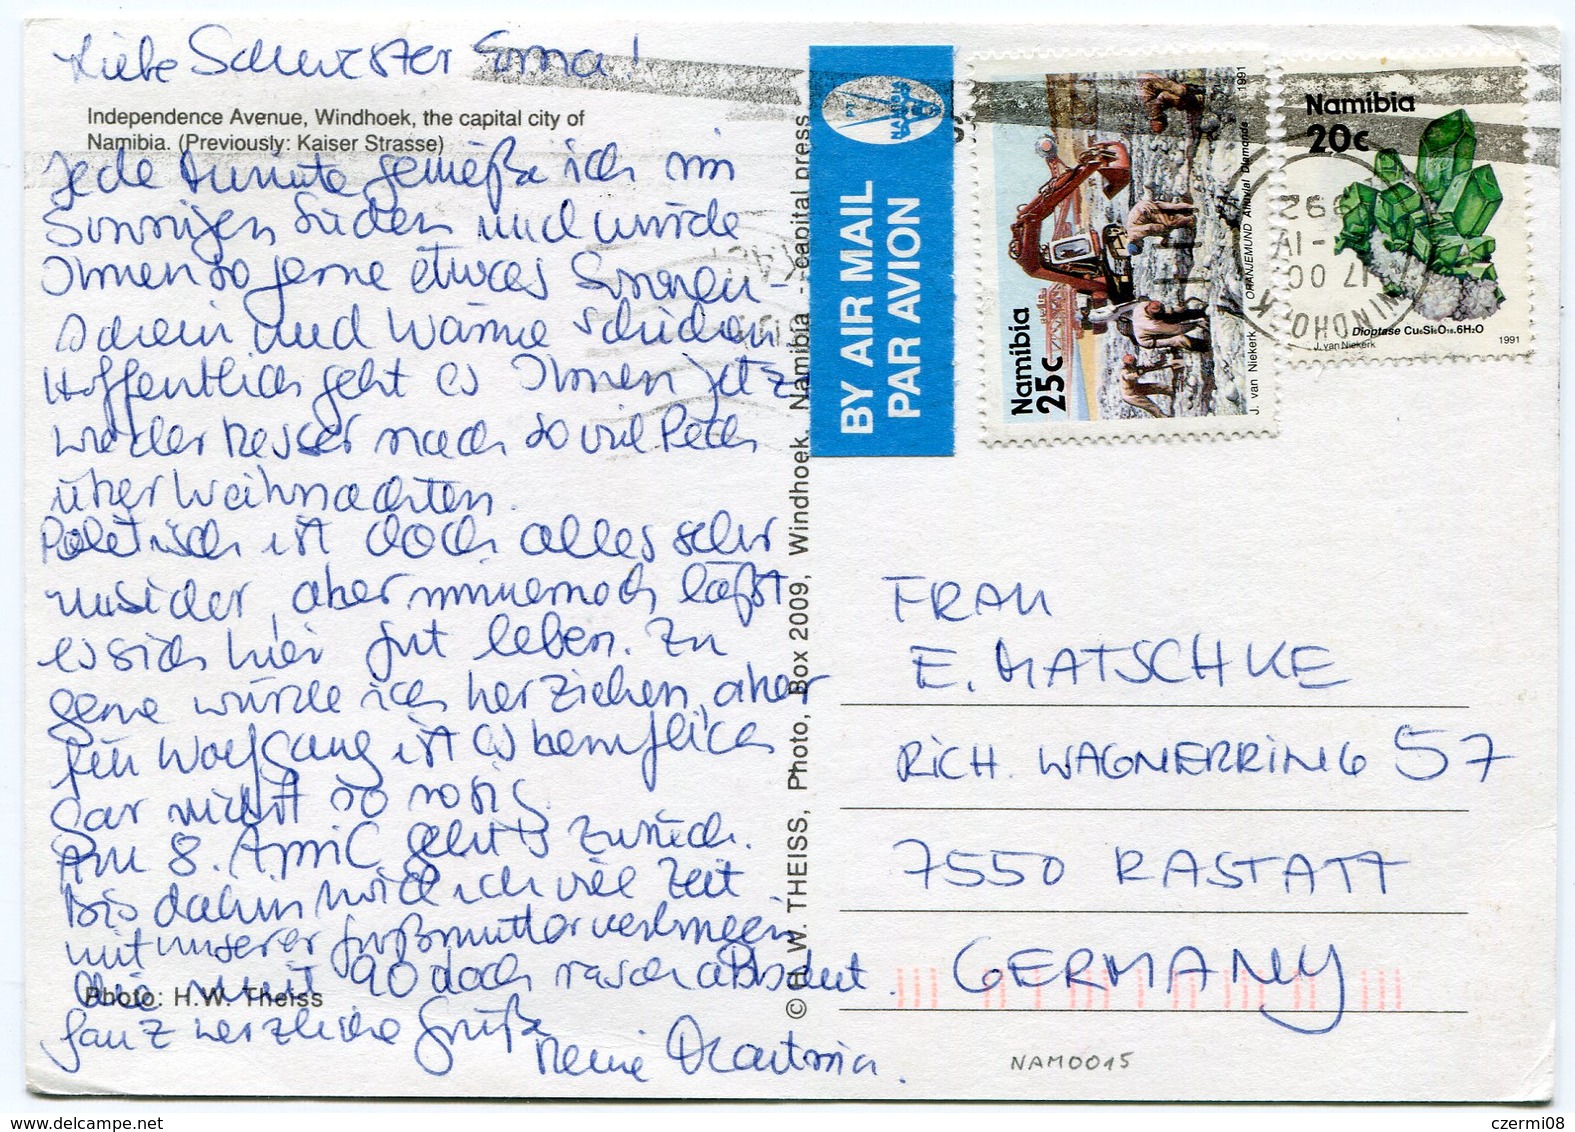 Liebe Schwester Erna!
Independence Avenue, Windhoek, the capital city of
Namibia. (Previously: Kaiser Strasse)
Jede Minute genieße ich im
sonnigen Süden und würde
Ihnen so gerne etwas Sonnen-
schein und Wärme schicken
Hoffentlich geht es Ihnen jetz
wieder besser nach so viel Pech
über Weihnachten.
Politisch ist doch alles sehr
unsicher, aber immernoch läßt
es sich hier gut leben. Zu
gerne würde ich herziehen, aber
für Wolfgang ist es beruflich
gar nicht so rosig.
Am 8. April geht's zurück.
Bis dahin will ich viel Zeit
mit unserer Großmutter verbringen
die mit 90 doch rasch abbaut.
Photo: H.W. Theiss
Ganz herzliche Grüße
© H. W. THEISS, Photo, Box 2009, Windhoek. Namibia - capital press
BY AIR MAIL
PAR AVION
NAMIBIA
Namibia
25c
ORANJEMUND Alluvial Diamonds
1991
J. van Niekerk
Namibia
20c
Dioptase Cu₆Si₆O₁₈.6H₂O
J. van Niekerk
1991
WINDHOEK
FRAU
E. MATSCHKE
RICH. WAGNERRING 57
7550 RASTATT
GERMANY
NAM0015
delcampe.net
czermi08